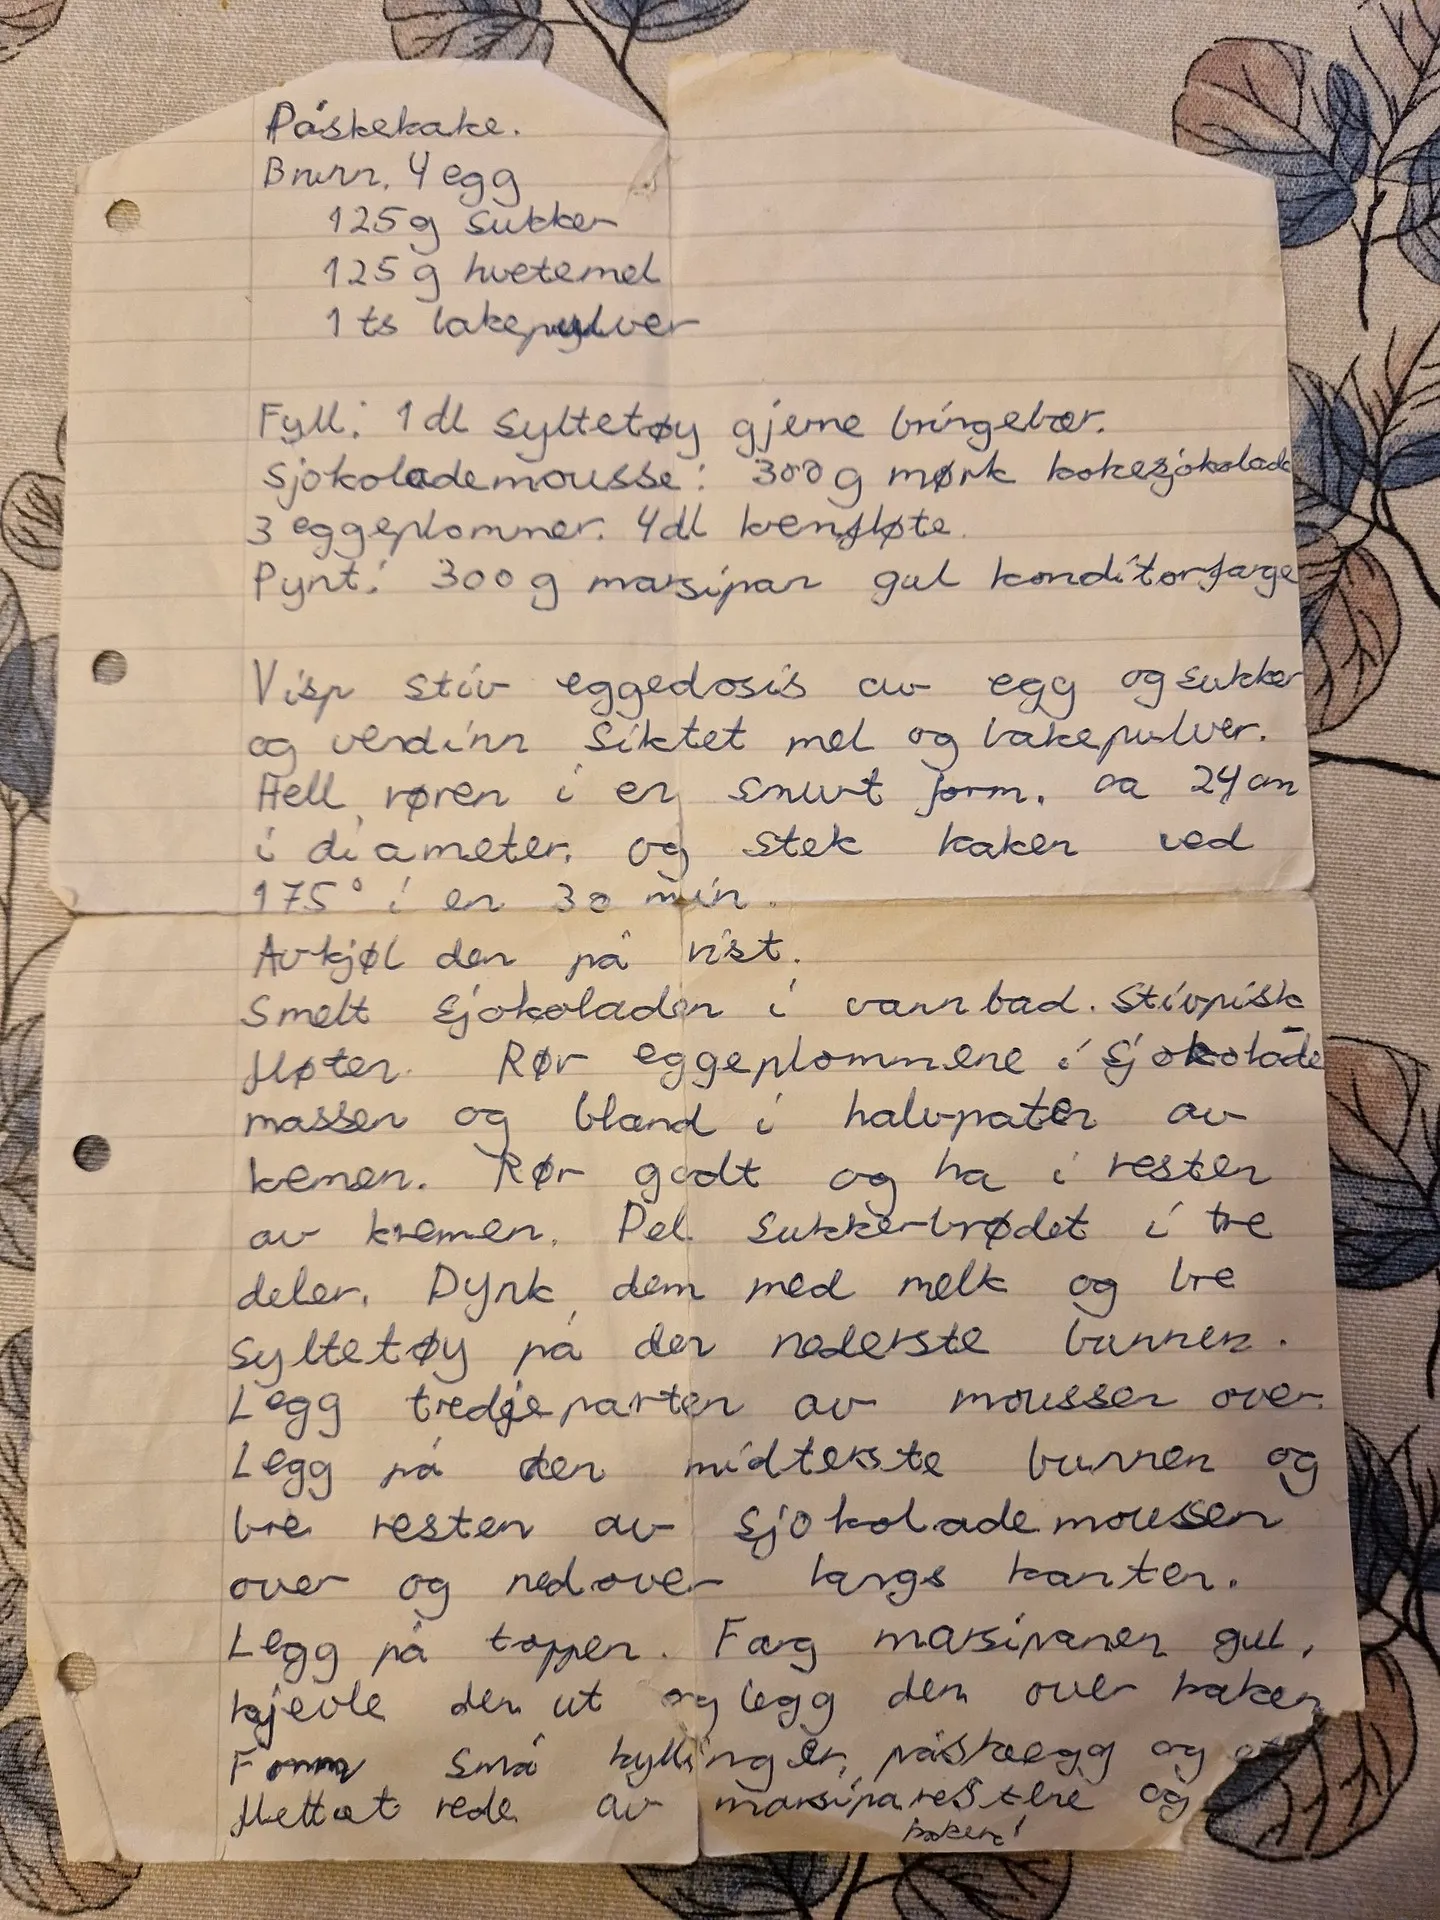 Påskekake.
Bunn. 4 egg
125 g sukker
125 g hvetemel
1 ts bakepulver
Fyll: 1 dl syltetøy gjerne bringebær.
Sjokolademousse: 300 g mørk kokesjokolade
3 eggeplommer. 4 dl kremfløte.
Pynt: 300 g marsipan gul konditorfarge
Visp stiv eggedosis av egg og sukker
og vend inn siktet mel og bakepulver.
Hell røren i en smurt form, ca 24 cm
i diameter, og stek kaken ved
175° i en 30 min.
Avkjøl den på rist.
Smelt sjokoladen i vannbad. Stivpisk
fløten. Rør eggeplommene i sjokolade-
massen og bland i halvparten av
kremen. Rør godt og ha i resten
av kremen. Del sukkerbrødet i tre
deler. Dynk dem med melk og bre
syltetøy på den nederste bunnen.
Legg tredjeparten av moussen over.
Legg på den midterste bunnen og
bre resten av sjokolademoussen
over og nedover langs kanten.
Legg på toppen. Farg marsipanen gul,
kjevle den ut og legg den over kaken
Form små kyllinger, påskeegg og
flettet rede av marsiparestene og